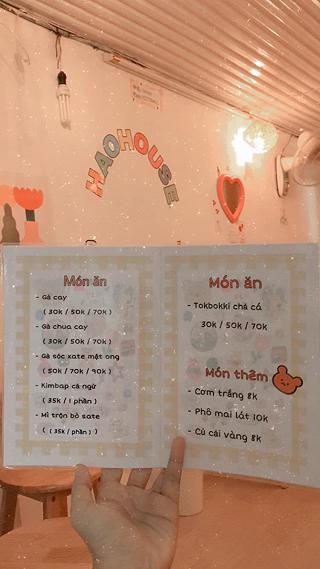 HAOHOUSE
Món ăn
- Gà cay
( 30k / 50k / 70k )
- Gà chua cay
( 30k / 50k / 70k )
- Gà sốc xate mật ong
( 50k / 70k / 90k )
- Kimbap cá ngừ
( 35k / 1 phần )
- Mì trộn bò sate
( ( 35k / phần ) )
Món ăn
- Tokbokki chả cá
30k / 50k / 70k
Món thêm
- Cơm trắng 8k
- Phô mai lát 10k
- Củ cải vàng 8k